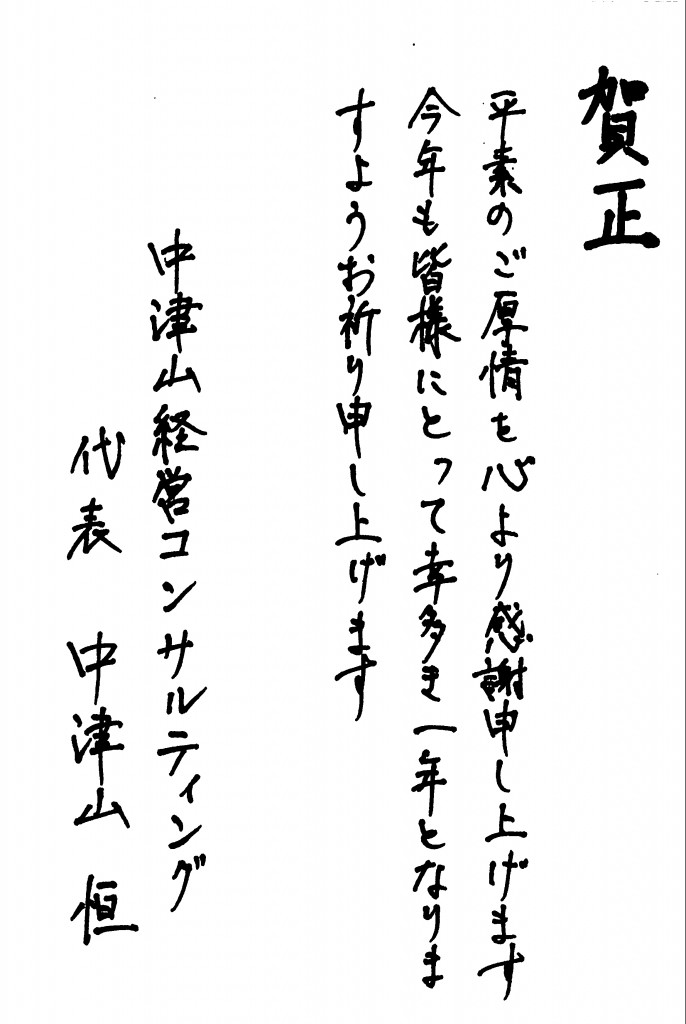 賀正
平素のご厚情を心より感謝申し上げます
今年も皆様にとって幸多き一年となりま
すようお祈り申し上げます
中津山経営コンサルティング
代表 中津山 恒